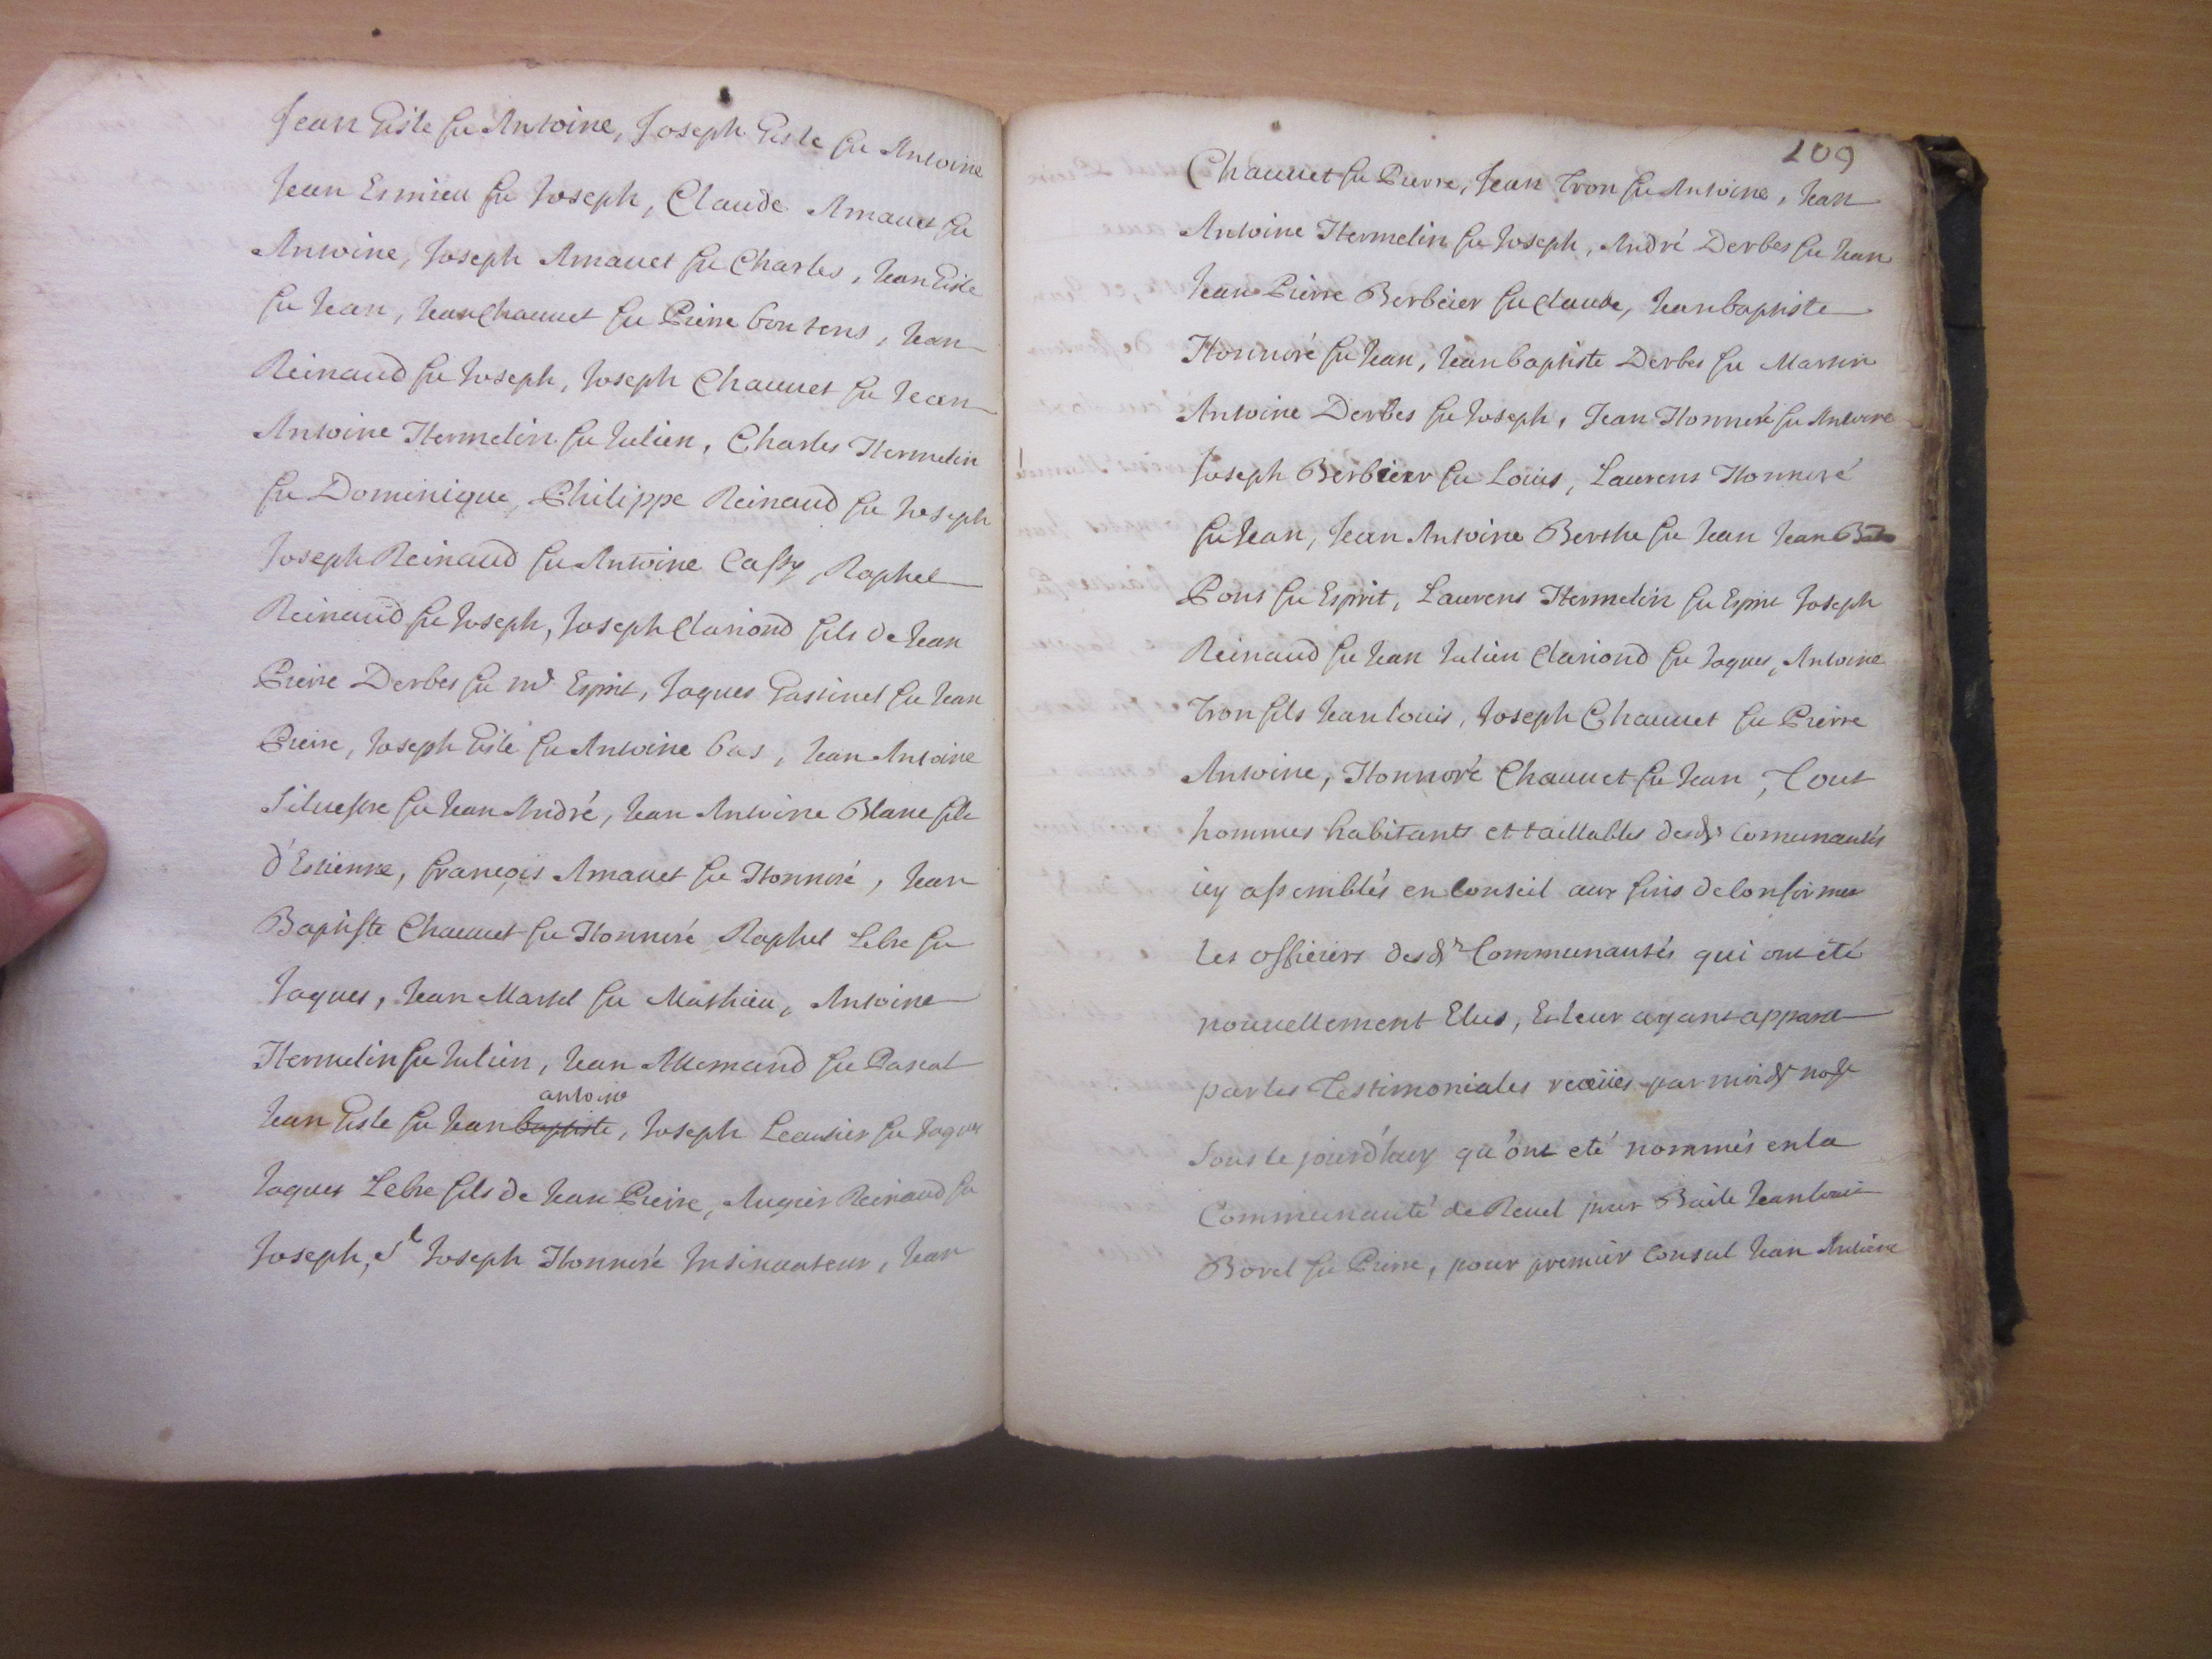 Jean Gisle fu Antoine, Joseph Gisle fu Antoine
Jean Esmieu fu Joseph, Claude Amauet fu
Antoine, Joseph Amauet fu Charles, Jean Gisle
fu Jean, Jean Chauuet fu Pierre bontens, Jean
Reinaud fu Joseph, Joseph Chauuet fu Jean
Antoine Hermelin fu Julien, Charles Hermelin
fu Dominique, Philippe Reinaud fu Joseph
Joseph Reinaud fu Antoine Cassy, Raphel
Reinaud fu Joseph, Joseph Clariond fils de Jean
Pierre Derbes fu me Esprit, Jaques Gastinel fu Jean
Pierre, Joseph Gisle fu Antoine bas, Jean Antoine
Siluestre fu Jean André, Jean Antoine Blanc fils
d'Estienne, françois Amauet fu Honnoré, Jean
Baptiste Chauuet fu Honnoré, Raphel Lebre fu
Jaques, Jean Martel fu Mathieu, Antoine
Hermelin fu Julien, Jean Allemand fu Pascal
antoine
Jean Gisle fu Jean baptiste, Joseph Leautier fu Jaques
Jaques Lebre fils de Jean Pierre, Augier Reinaud fu
Joseph, Sr Joseph Honnoré Insinuateur, Jean
209
Chauuet fu Pierre, Jean Tron fu Antoine, Jean
Antoine Hermelin fu Joseph, André Derbes fu Jean
Jean Pierre Berbeier fu Claude, Jean baptiste
Honnoré fu Jean, Jean baptiste Derbes fu Martin
Antoine Derbes fu Joseph, Jean Honnoré fu Antoine
Joseph Berbeier fu Louis, Laurens Honnoré
fu Jean, Jean Antoine Berthe fu Jean Jean
Pons fu Esprit, Laurens Hermelin fu Esprit Joseph
Reinaud fu Jean Julien Clariond fu Jaques, Antoine
Tron fils Jean louis, Joseph Chauuet fu Pierre
Antoine, Honnoré Chauuet fu Jean, Tout
hommes habitants et taillables desds Comunautés
icy assemblés en Conseil aux fins de Confirmer
les officiers desds Communautés qui ont été
nouuellement Elus, Et leur ayant apparu
par les Testimoniales receües par moidt nore
sous le jourd'huy qu'ont eté nommés en la
Communauté de Reuel pour Baile Jean louis
Borel fu Pierre, pour premier Consul Jean Antoine